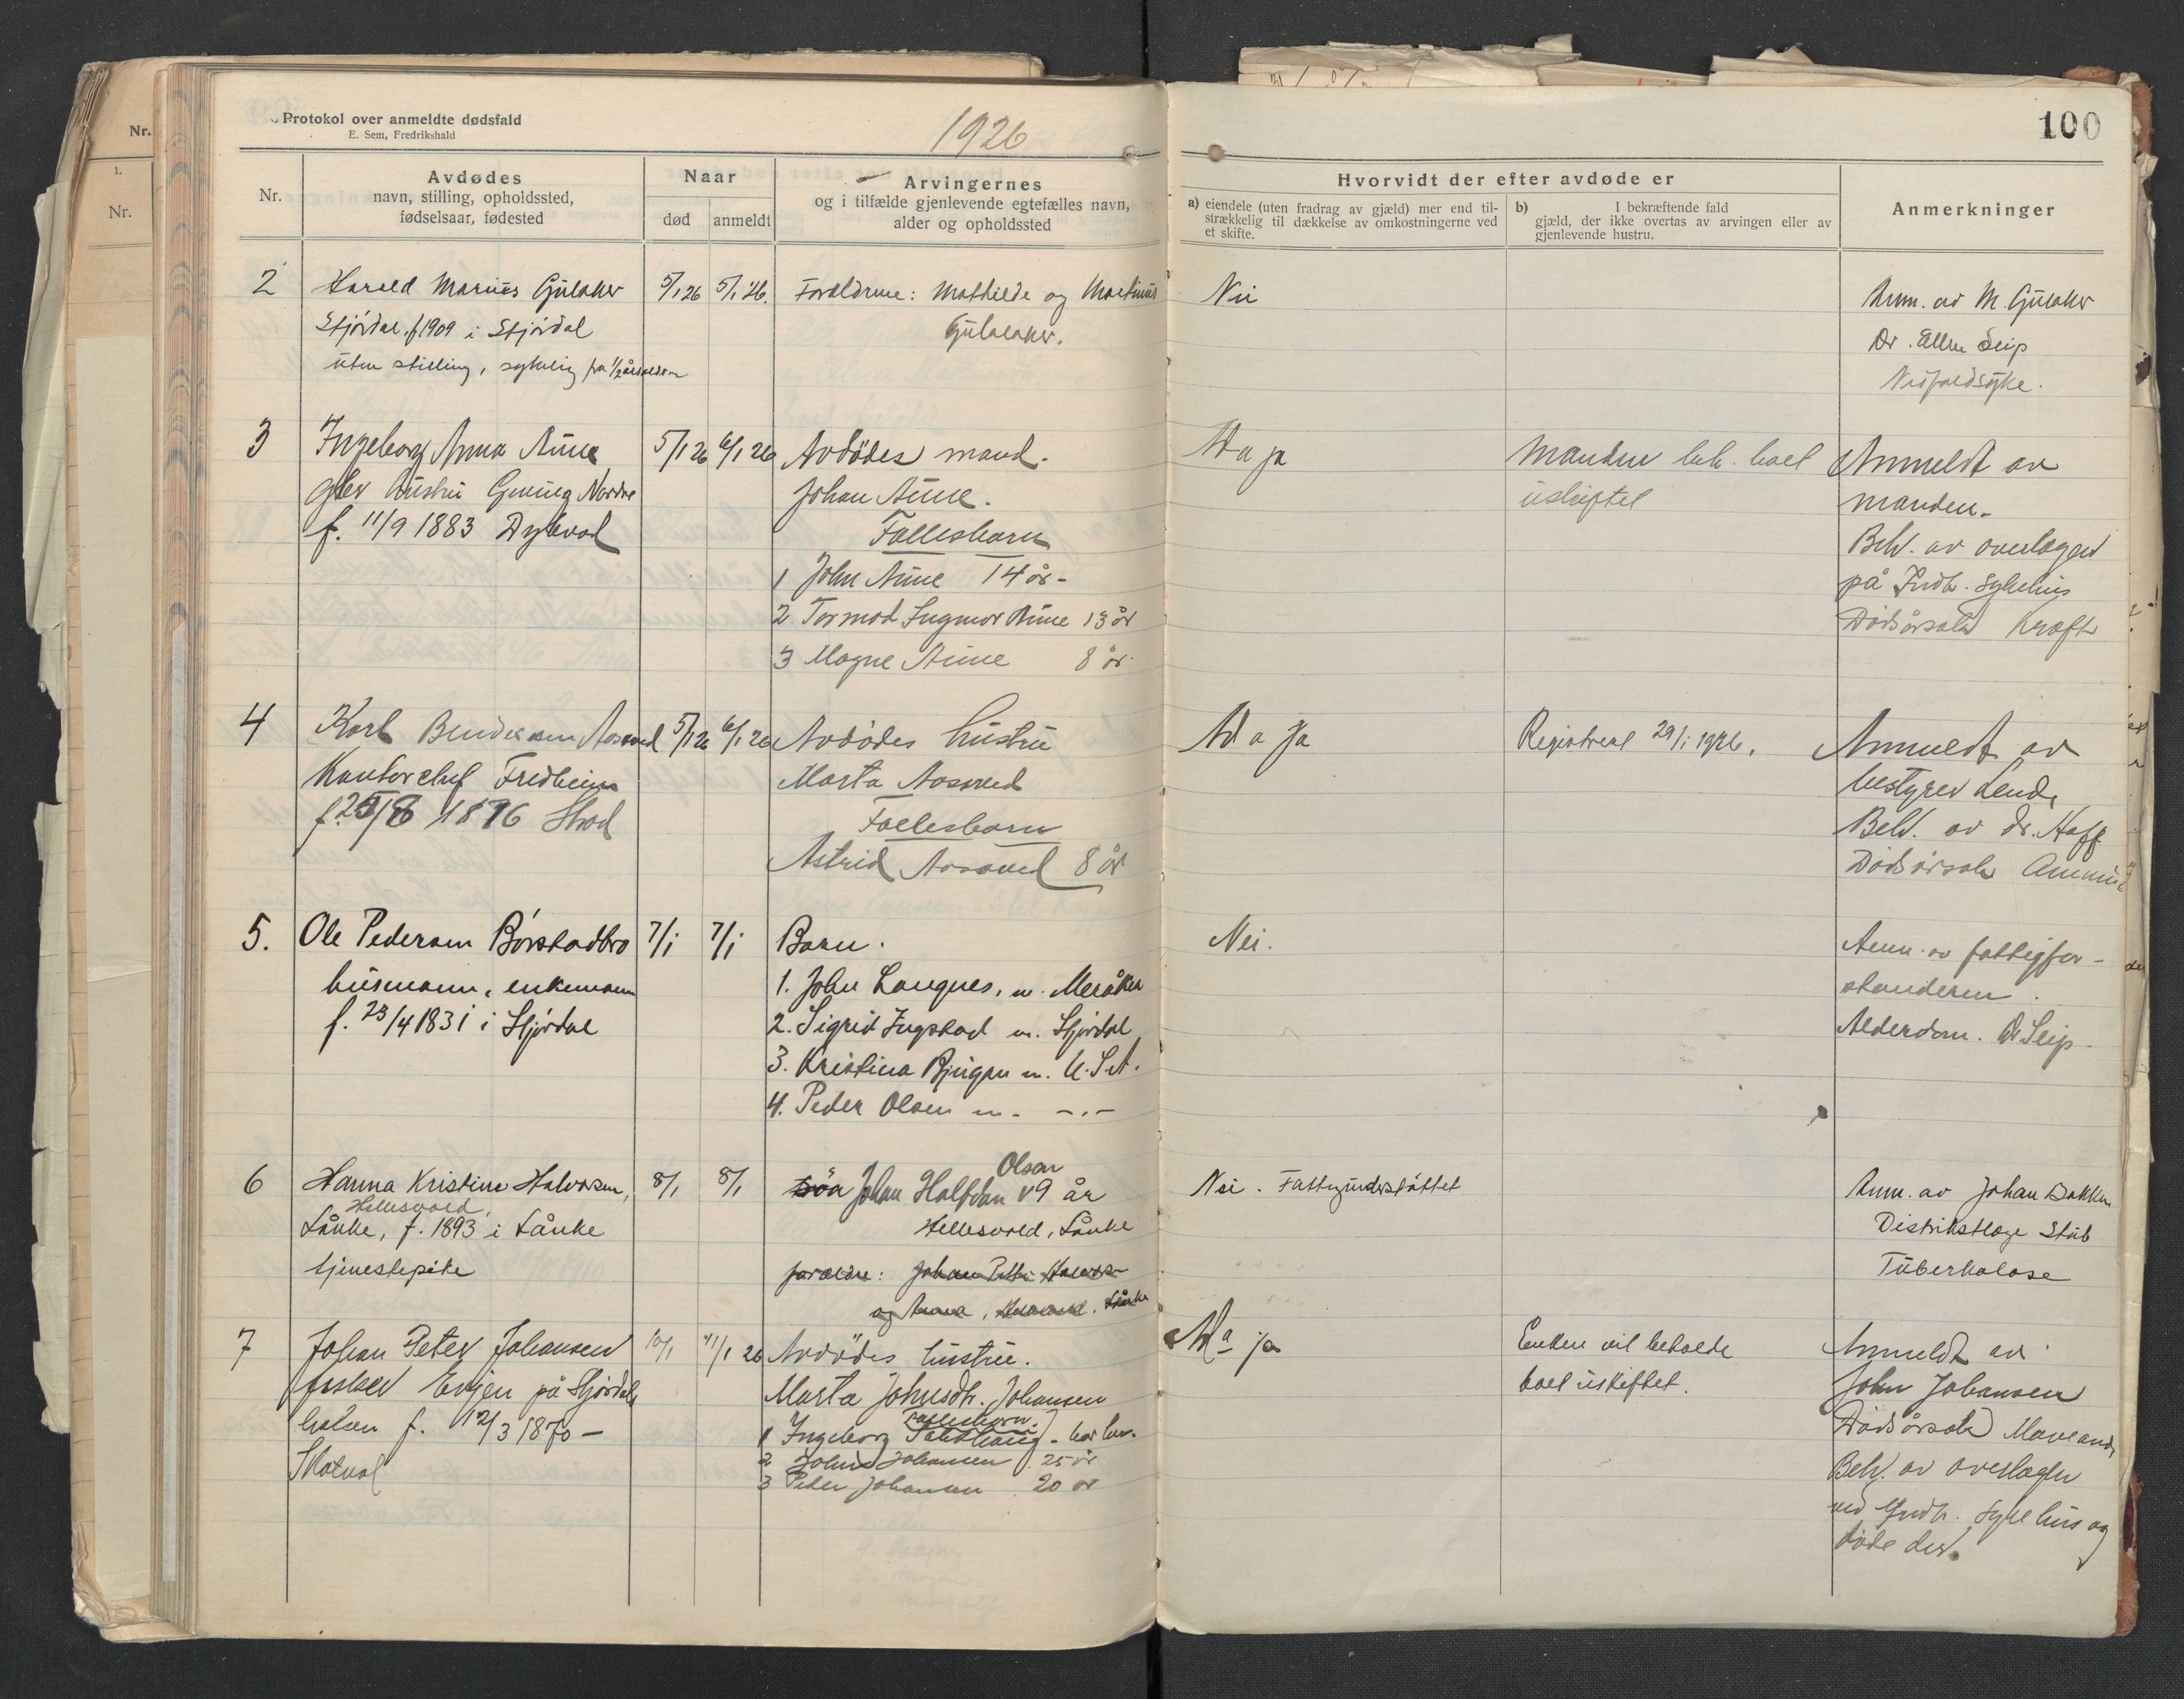 Protokol over anmeldte dødsfald
E. Sem, Fredrikshald
1926
100
Nr.
1.
Nr.
Nr.
Avdødes
navn, stilling, opholdssted,
fødselsaar, fødested
Naar
død
anmeldt
Arvingernes
og i tilfælde gjenlevende egtefælles navn,
alder og opholdssted
Hvorvidt der efter avdøde er
a) eiendele (uten fradrag av gjæld) mer end til-
strækkelig til dækkelse av omkostningerne ved
et skifte.
b) I bekræftende fald
gjæld, der ikke overtas av arvingen eller av
gjenlevende hustru.
Anmerkninger
2
Harald Marius Gulaker
Stjørdal, f. 1909 i Stjørdal
uten stilling, sykelig fra 1/2 årsalder
5/1 26
5/1 26.
Forældrene: Mathilde og Martinus
Gulaker.
Nei
Anm. av M. Gulaker
Dr. Ellen Seip
Nedfaldsyke.
3
Ingeborg Anna Aune
hustru Nordre
f. 11/9 1883
5/1 26
6/1 26
Avdødes mand.
Johan Aune.
Fællesbarn
1 John Aune 14 år -
2 Tormod Ingmar Aune 13 år
3 Magne Aune 8 år.
a ja
Manden beh. boet
uskiftet
Anmeldt av
manden.
Beh. av overlægen
på Indh. sykehus
Dødsårsak Kræft
4
Karl Bendiksen Aasved
Kontorchef Fredheim
f. 25/8 1876
5/1 26
6/1 26
Avdødes hustru
Marta Aasved
Fællesbarn
Astrid Aasved 8 år
a ja
Registreret 29/1 1926.
Anmeldt av
bestyrer
Beh. av dr. Hoff
Dødsårsak
5.
Ole Pedersen Børstadbro
husmann, enkemann
f. 23/4 1831 i Stjørdal
7/1
7/1
Barn.
1. John Langnes, m. Meråker
2. Sigrid Ingstad m. Stjørdal
3. Kristina m. U.S.A.
4. Peder Olsen m. -.-
Nei.
Anm. av fattigfor-
standeren.
Alderdom. Dr Seip.
6
Hanna Kristine Halvorsen,
Hellesvold,
Lånke, f. 1893 i Lånke
tjenestepike
8/1
8/1
Olsen
Johan Halfdan 9 år
Hellesvold, Lånke
forældre: Johan
og Anna, Lånke
Nei. Fattigunderstøttet
Anm. av Johan Bakken
Distriktslæge Stub
Tuberkolose
7
Johan Peter Johansen
fisker Evjen på Stjørdals
halsen f. 12/3 1870 -
Skatval
10/1
11/1 26
Avdødes hustru.
Marta Johnsdtr. Johansen
Fællesbarn.
1 Ingeborg
2 John Johansen 25 år
3 Peder Johansen 20 år
a ja
Enken vil beholde
boet uskiftet.
Anmeldt av
John Johansen
Dødsårsak
Beh. av overlægen
ved Indh. sykehus og
døde der.